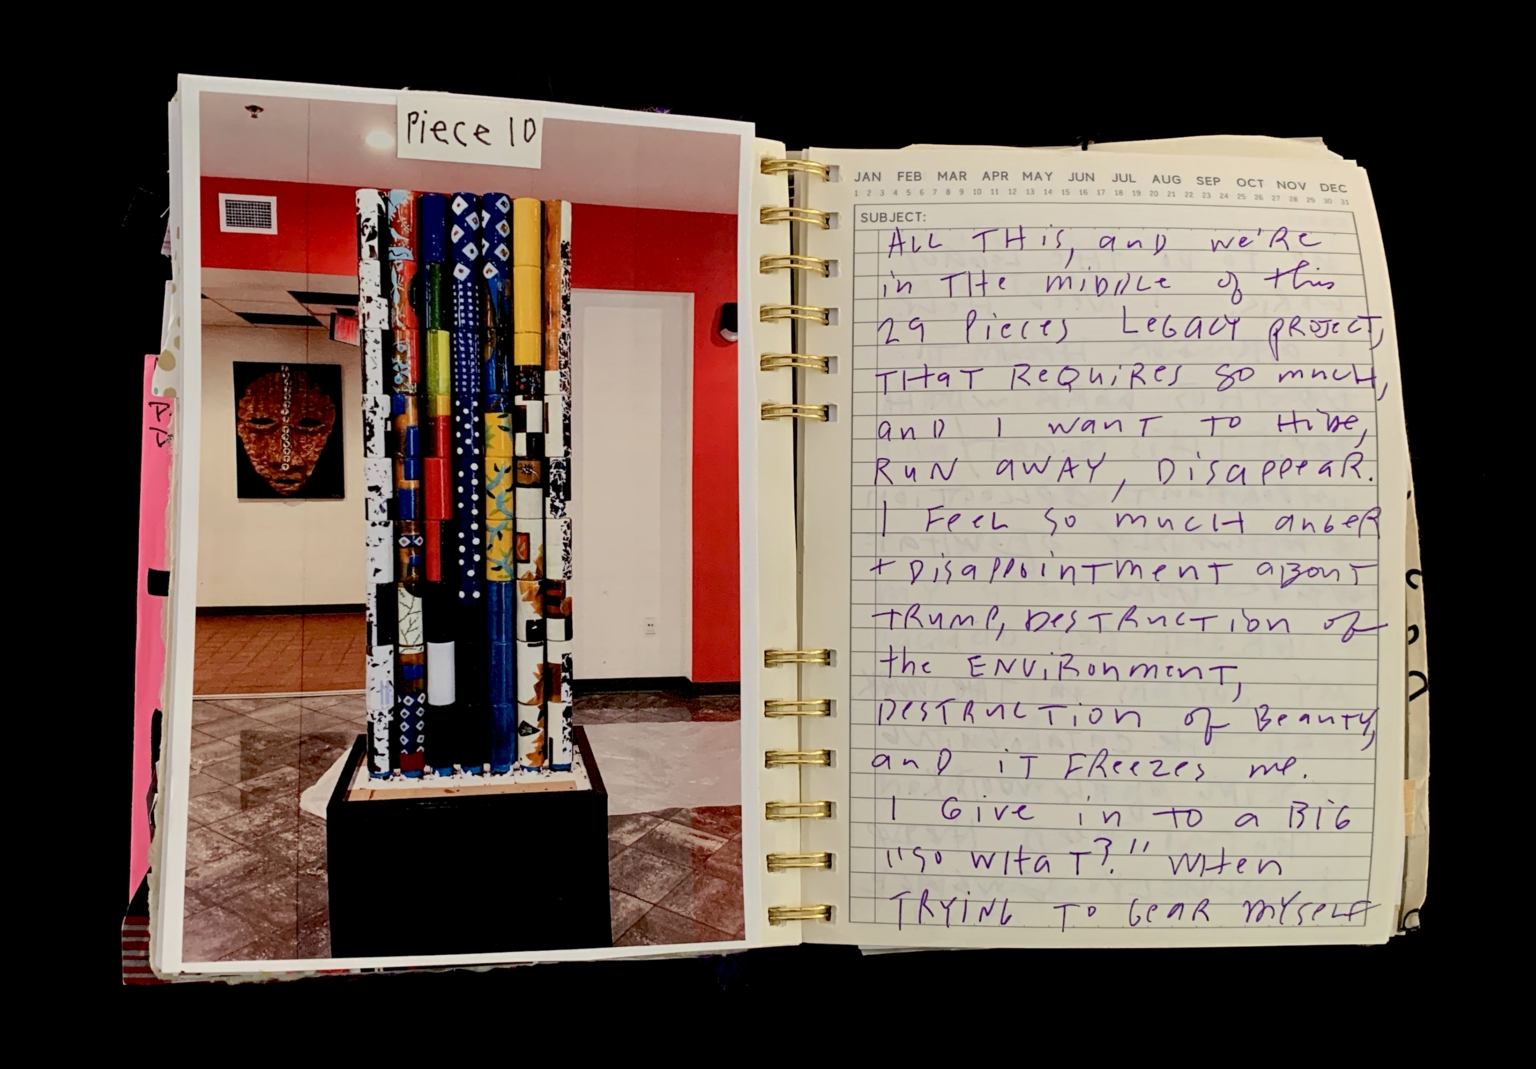 Piece 10
JAN FEB MAR APR MAY JUN JUL AUG SEP OCT NOV DEC
1 2 3 4 5 6 7 8 9 10 11 12 13 14 15 16 17 18 19 20 21 22 23 24 25 26 27 28 29 30 31
SUBJECT:
ALL THis, anD we'Re
in THe miDDLe of this
29 Pieces LeGacy PROJECT,
THaT ReQuiRes so mucH,
anD I wanT To HiDe,
RuN aWAY, DisappeaR.
I FeeL so mucH anGeR
+ DisappoinTmenT aBouT
TRump, DesTRucTion of
the ENViRonmenT,
DesTRucTion of BeauTy,
anD iT FReezes me.
I Give in To a BiG
"so WHaT?" WHen
TRYING To GeaR myseLF